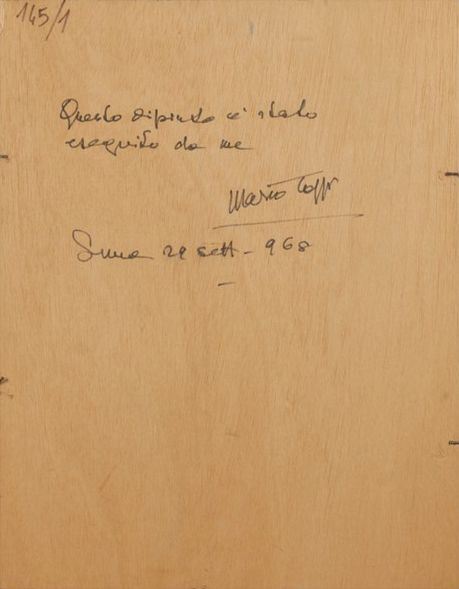 145/1
Questo dipinto è stato
eseguito da me
Mario Toppi
29 sett - 968